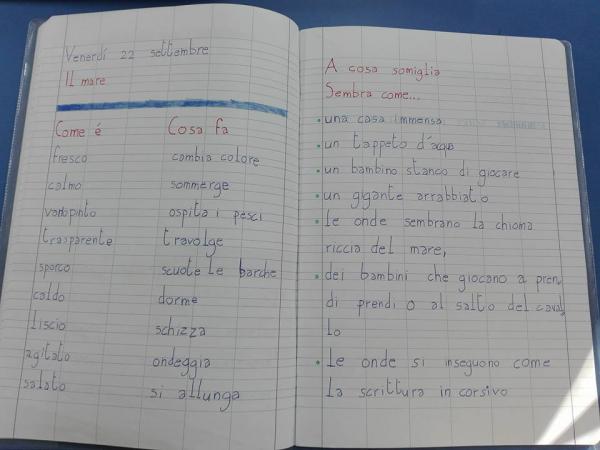 Venerdí 22 settembre
Il mare
Come é Cosa fa
fresco cambia colore
calmo sommerge
variopinto ospita i pesci
trasparente travolge
sporco scuote le barche
caldo dorme
liscio schizza
agitato ondeggia
salato si allunga
A cosa somiglia
Sembra come...
• una casa immensa
• un tappeto d'acqua
• un bambino stanco di giocare
• un gigante arrabbiato
• le onde sembrano la chioma
riccia del mare,
• dei bambini che giocano a pren
di prendi o al salto del caval
lo
• le onde si inseguono come
la scrittura in corsivo